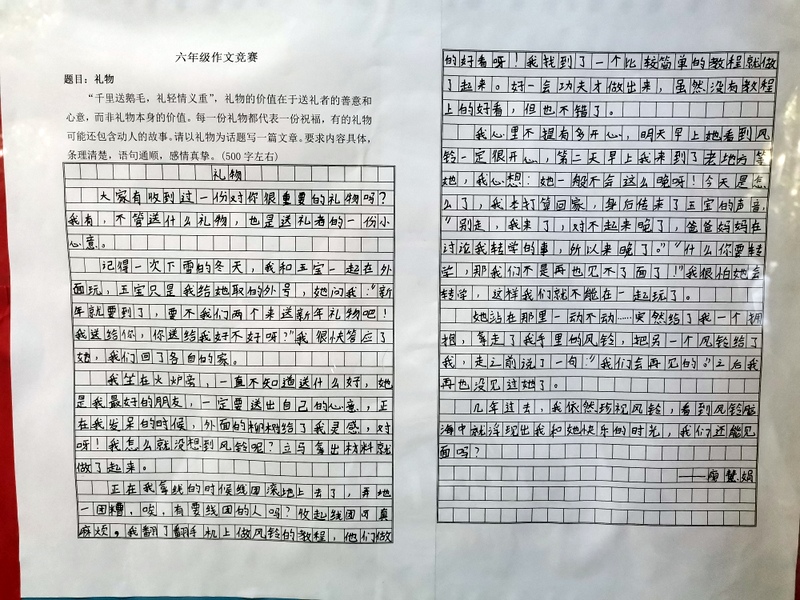 六年级作文竞赛
题目：礼物
“千里送鹅毛，礼轻情义重”，礼物的价值在于送礼者的善意和
心意，而非礼物本身的价值。每一份礼物都代表一份祝福，有的礼物
可能还包含动人的故事。请以礼物为话题写一篇文章。要求内容具体，
条理清楚，语句通顺，感情真挚。（500字左右）
礼物
大家有收到过一份对你很重要的礼物吗？
我有，不管送什么礼物，也是送礼者的一份小
心意。
记得一次下雪的冬天，我和五宝一起在外
面玩，五宝只是我给她取的外号，她问我：“新
年就要到了，要不我们两个来送新年礼物吧！
我送给你，你送给我好不好呀？”我很快答应了
她，我们回了各自的家。
我坐在火炉旁，一直不知道送什么好，她
是我最好的朋友，一定要送出自己的心意，正
在我发呆的时候，外面的柳树给了我灵感，对
呀！我怎么就没想到风铃呢？立马拿出材料就
做了起来。
正在我拿线的时候线团滚地上去了，弄地
一团糟，唉，有要线团的人吗？收起线团可真
麻烦，我翻了翻手机上做风铃的教程，他们做
的好看呀！我找到了一个比较简单的教程就做
了起来。好一会功夫才做出来，虽然没有教程
上的好看，但也不错了。
我心里不提有多开心，明天早上她看到风
铃一定很开心，第二天早上我来到了老地方等
她，我心想：她一般不会这么晚呀！今天是怎
么了，我老打算回家，身后传来了五宝的声音，
“别走，我来了，对不起来晚了，爸爸妈妈在
讨论我转学的事，所以来晚了。”“什么你要转
学，那我们不是再也见不了面了！”我很怕她会
转学，这样我们就不能在一起玩了。
她站在那里一动不动……突然给了我一个拥
抱，拿走了我手里的风铃，把另一个风铃给了
我，走之前说了一句：“我们会再见的。”之后我
再也没见过她了。
几年过去，我依然珍视风铃，看到风铃脑
海中就浮现出我和她快乐的时光，我们还能见
面吗？
——慧娟